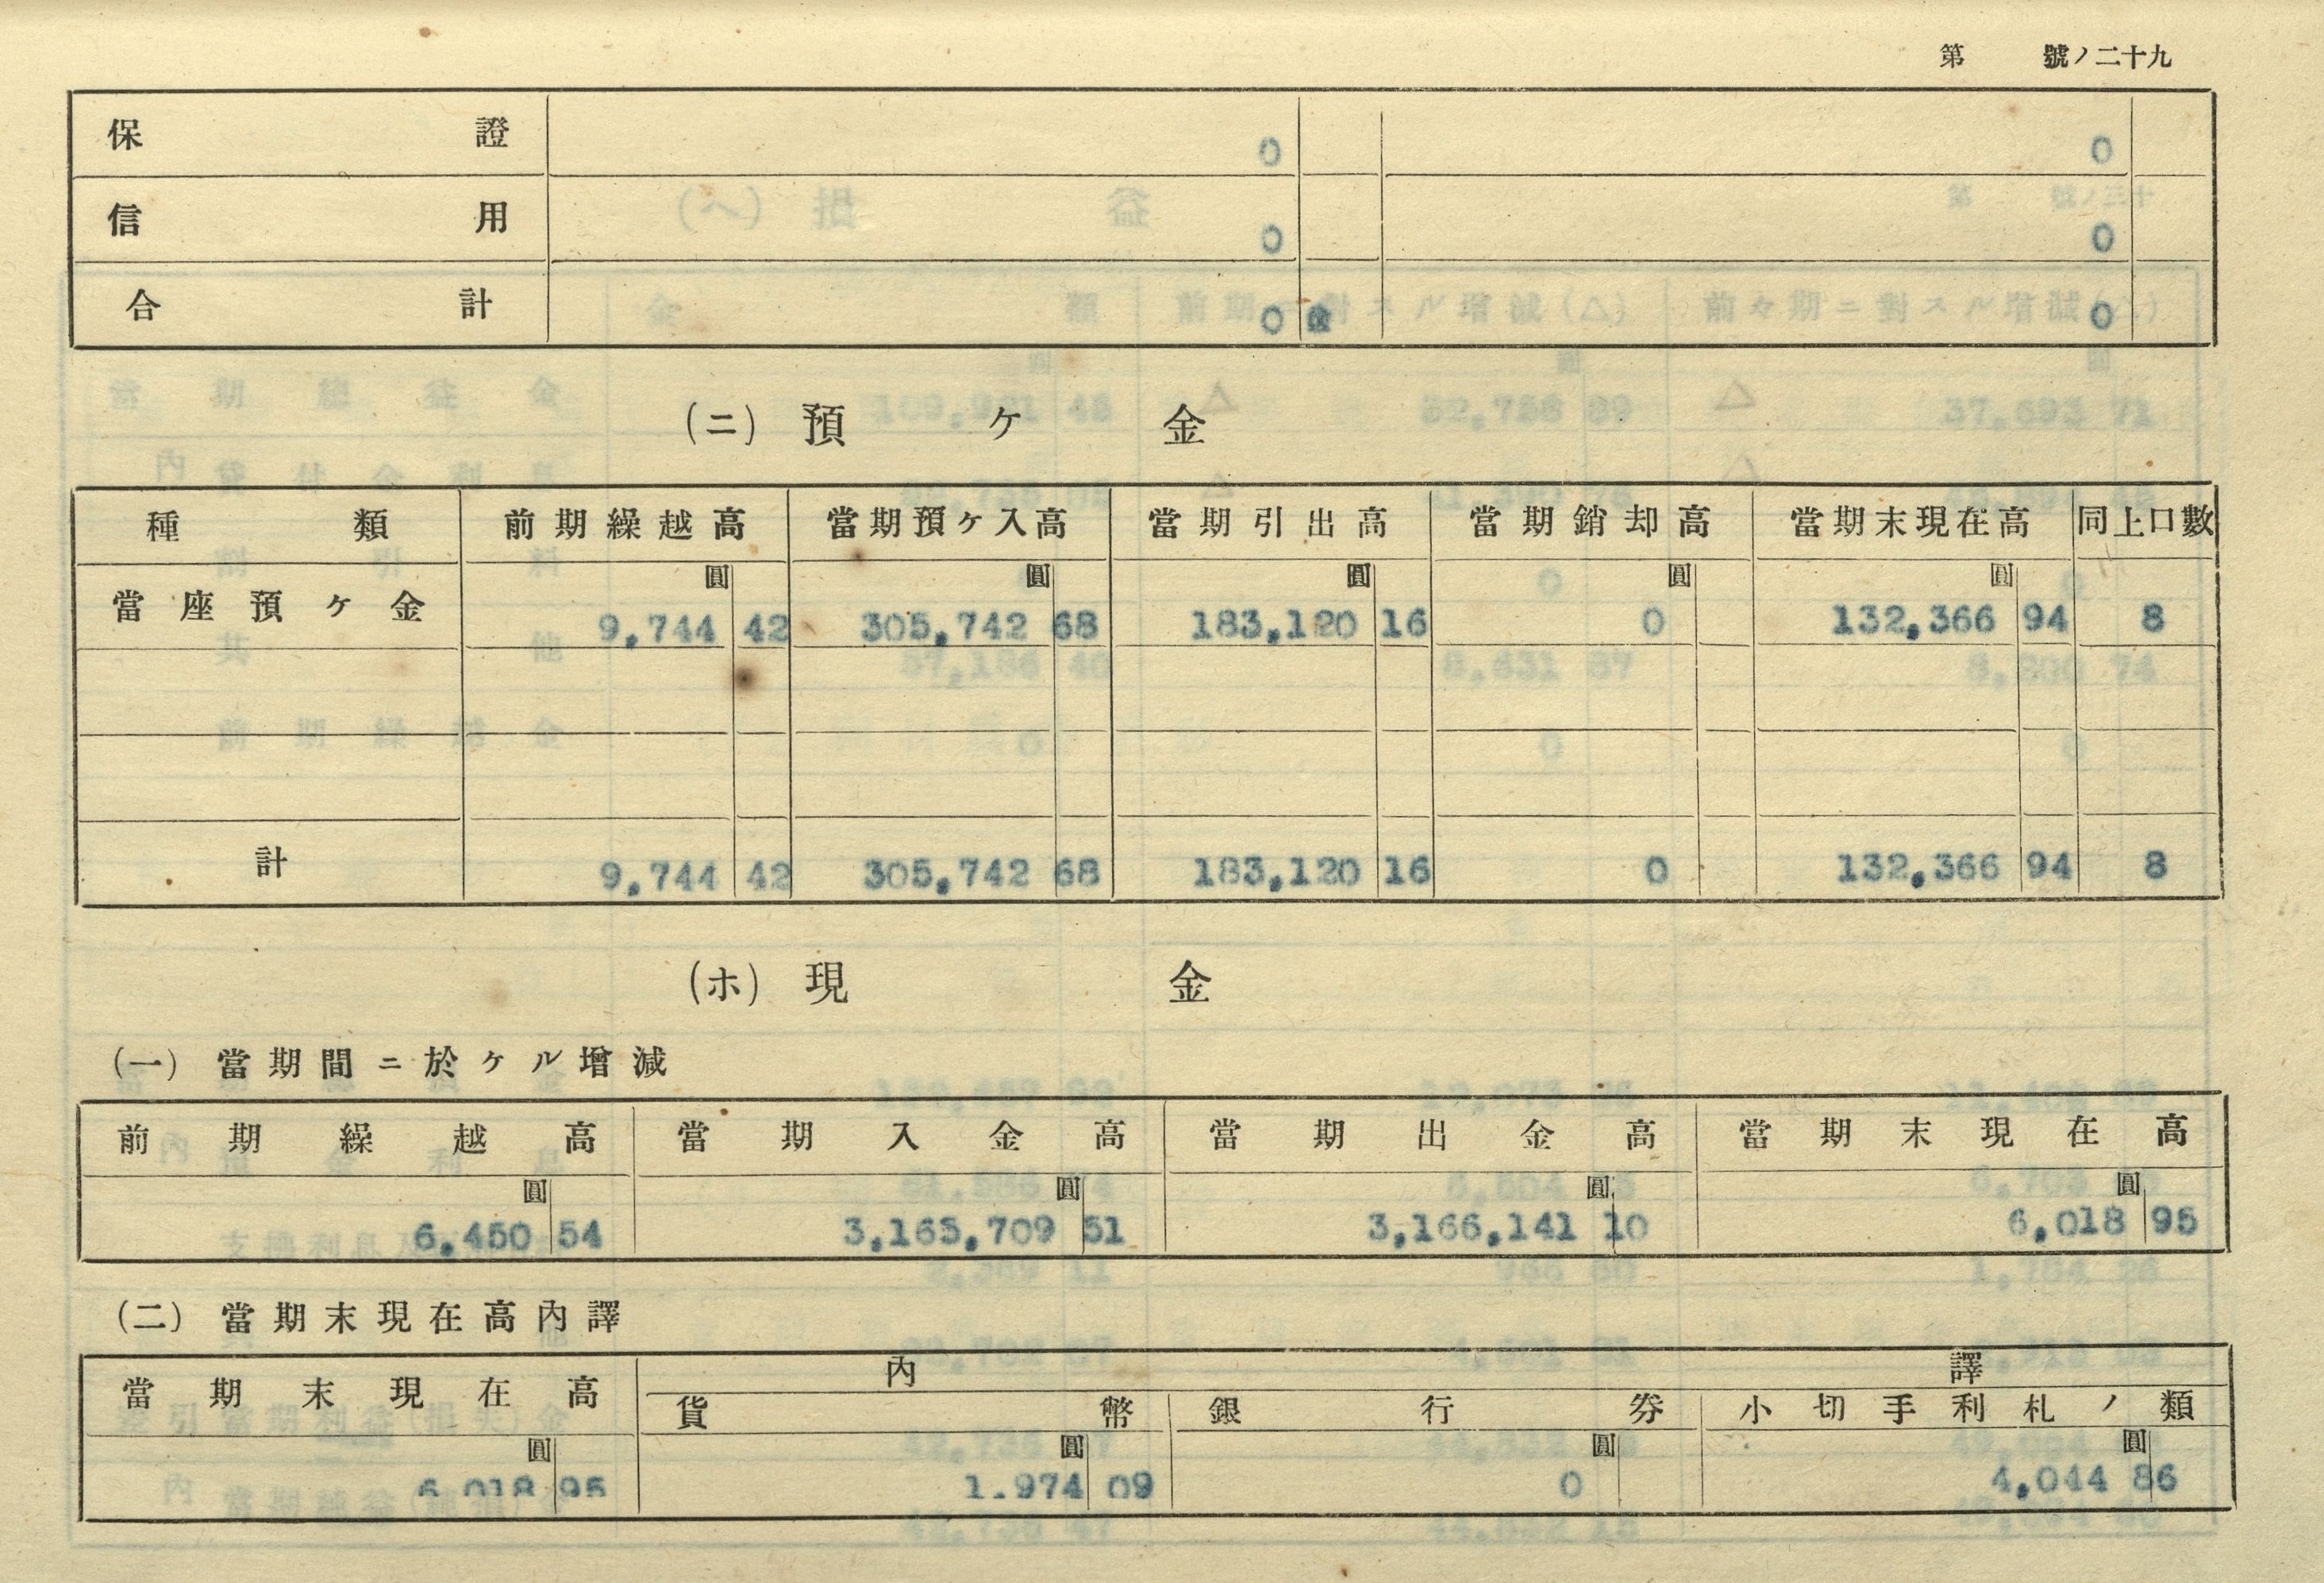 第 號ノ二十九
保證 0 0
信用 0 0
合計 0 0
(ニ) 預ケ金
種類 前期繰越高 當期預ケ入高 當期引出高 當期銷却高 當期末現在高 同上口數
圓 圓 圓 圓 圓
當座預ケ金 9,744 42 305,742 68 183,120 16 0 132,366 94 8
計 9,744 42 305,742 68 183,120 16 0 132,366 94 8
(ホ) 現金
(一) 當期間ニ於ケル增減
前期繰越高 當期入金高 當期出金高 當期末現在高
圓 圓 圓 圓
6,450 54 3,165,709 51 3,166,141 10 6,018 95
(二) 當期末現在高內譯
當期末現在高 內譯
貨幣 銀行券 小切手利札ノ類
圓 圓 圓 圓
6,018 95 1.974 09 0 4,044 86